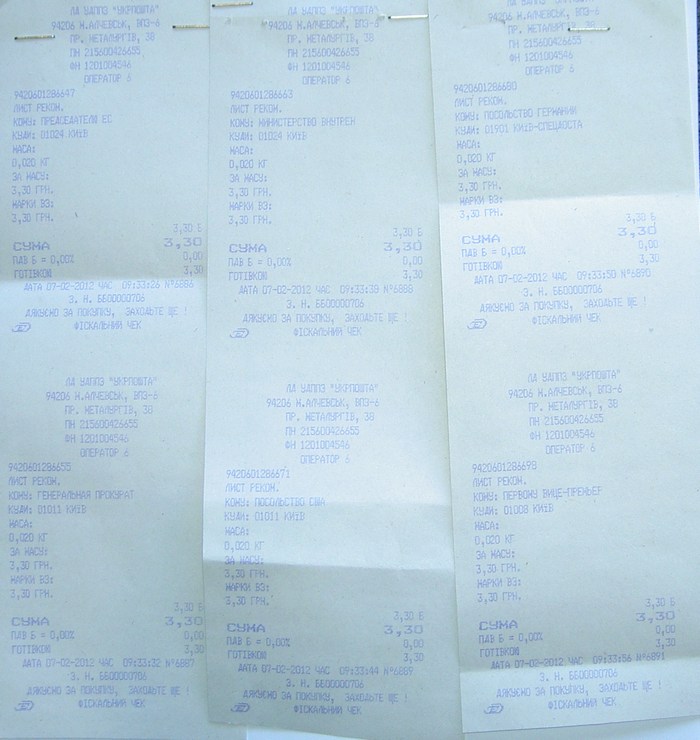 ЛД УДППЗ "УКРПОШТА"
94206 М.АЛЧЕВСЬК, ВПЗ-6
ПР. МЕТАЛУРГІВ, 38
ПН 215600426655
ФН 1201004546
ОПЕРАТОР 6
9420601286647
ЛИСТ РЕКОМ.
КОМУ: ПРЕДСЕДАТЕЛЯ ЕС
КУДИ: 01024 КИЇВ
МАСА:
0,020 КГ
ЗА МАСУ:
3,30 ГРН.
МАРКИ ВЗ:
3,30 ГРН.
3,30 Б
СУМА 3,30
ПДВ Б = 0,00% 0,00
ГОТІВКОЮ 3,30
ДАТА 07-02-2012 ЧАС 09:33:26 №6886
З. Н. ББ00000706
ДЯКУЄМО ЗА ПОКУПКУ, ЗАХОДЬТЕ ЩЕ !
ФІСКАЛЬНИЙ ЧЕК
ЛД УДППЗ "УКРПОШТА"
94206 М.АЛЧЕВСЬК, ВПЗ-6
ПР. МЕТАЛУРГІВ, 38
ПН 215600426655
ФН 1201004546
ОПЕРАТОР 6
9420601286655
ЛИСТ РЕКОМ.
КОМУ: ГЕНЕРАЛЬНАЯ ПРОКУРАТ
КУДИ: 01011 КИЇВ
МАСА:
0,020 КГ
ЗА МАСУ:
3,30 ГРН.
МАРКИ ВЗ:
3,30 ГРН.
3,30 Б
СУМА 3,30
ПДВ Б = 0,00% 0,00
ГОТІВКОЮ 3,30
ДАТА 07-02-2012 ЧАС 09:33:32 №6887
З. Н. ББ00000706
ДЯКУЄМО ЗА ПОКУПКУ, ЗАХОДЬТЕ ЩЕ !
ФІСКАЛЬНИЙ ЧЕК
ЛД УДППЗ "УКРПОШТА"
94206 М.АЛЧЕВСЬК, ВПЗ-6
ПР. МЕТАЛУРГІВ, 38
ПН 215600426655
ФН 1201004546
ОПЕРАТОР 6
9420601286663
ЛИСТ РЕКОМ.
КОМУ: МИНИСТЕРСТВО ВНУТРЕН
КУДИ: 01024 КИЇВ
МАСА:
0,020 КГ
ЗА МАСУ:
3,30 ГРН.
МАРКИ ВЗ:
3,30 ГРН.
3,30 Б
СУМА 3,30
ПДВ Б = 0,00% 0,00
ГОТІВКОЮ 3,30
ДАТА 07-02-2012 ЧАС 09:33:38 №6888
З. Н. ББ00000706
ДЯКУЄМО ЗА ПОКУПКУ, ЗАХОДЬТЕ ЩЕ !
ФІСКАЛЬНИЙ ЧЕК
ЛД УДППЗ "УКРПОШТА"
94206 М.АЛЧЕВСЬК, ВПЗ-6
ПР. МЕТАЛУРГІВ, 38
ПН 215600426655
ФН 1201004546
ОПЕРАТОР 6
9420601286671
ЛИСТ РЕКОМ.
КОМУ: ПОСОЛЬСТВО США
КУДИ: 01011 КИЇВ
МАСА:
0,020 КГ
ЗА МАСУ:
3,30 ГРН.
МАРКИ ВЗ:
3,30 ГРН.
3,30 Б
СУМА 3,30
ПДВ Б = 0,00% 0,00
ГОТІВКОЮ 3,30
ДАТА 07-02-2012 ЧАС 09:33:44 №6889
З. Н. ББ00000706
ДЯКУЄМО ЗА ПОКУПКУ, ЗАХОДЬТЕ ЩЕ !
ФІСКАЛЬНИЙ ЧЕК
ЛД УДППЗ "УКРПОШТА"
94206 М.АЛЧЕВСЬК, ВПЗ-6
ПР. МЕТАЛУРГІВ, 38
ПН 215600426655
ФН 1201004546
ОПЕРАТОР 6
9420601286680
ЛИСТ РЕКОМ.
КОМУ: ПОСОЛЬСТВО ГЕРМАНИИ
КУДИ: 01901 КИЇВ-СПЕЦПОШТА
МАСА:
0,020 КГ
ЗА МАСУ:
3,30 ГРН.
МАРКИ ВЗ:
3,30 ГРН.
3,30 Б
СУМА 3,30
ПДВ Б = 0,00% 0,00
ГОТІВКОЮ 3,30
ДАТА 07-02-2012 ЧАС 09:33:50 №6890
З. Н. ББ00000706
ДЯКУЄМО ЗА ПОКУПКУ, ЗАХОДЬТЕ ЩЕ !
ФІСКАЛЬНИЙ ЧЕК
ЛД УДППЗ "УКРПОШТА"
94206 М.АЛЧЕВСЬК, ВПЗ-6
ПР. МЕТАЛУРГІВ, 38
ПН 215600426655
ФН 1201004546
ОПЕРАТОР 6
9420601286698
ЛИСТ РЕКОМ.
КОМУ: ПЕРВОМУ ВИЦЕ-ПРЕМЬЕР
КУДИ: 01008 КИЇВ
МАСА:
0,020 КГ
ЗА МАСУ:
3,30 ГРН.
МАРКИ ВЗ:
3,30 ГРН.
3,30 Б
СУМА 3,30
ПДВ Б = 0,00% 0,00
ГОТІВКОЮ 3,30
ДАТА 07-02-2012 ЧАС 09:33:56 №6891
З. Н. ББ00000706
ДЯКУЄМО ЗА ПОКУПКУ, ЗАХОДЬТЕ ЩЕ !
ФІСКАЛЬНИЙ ЧЕК